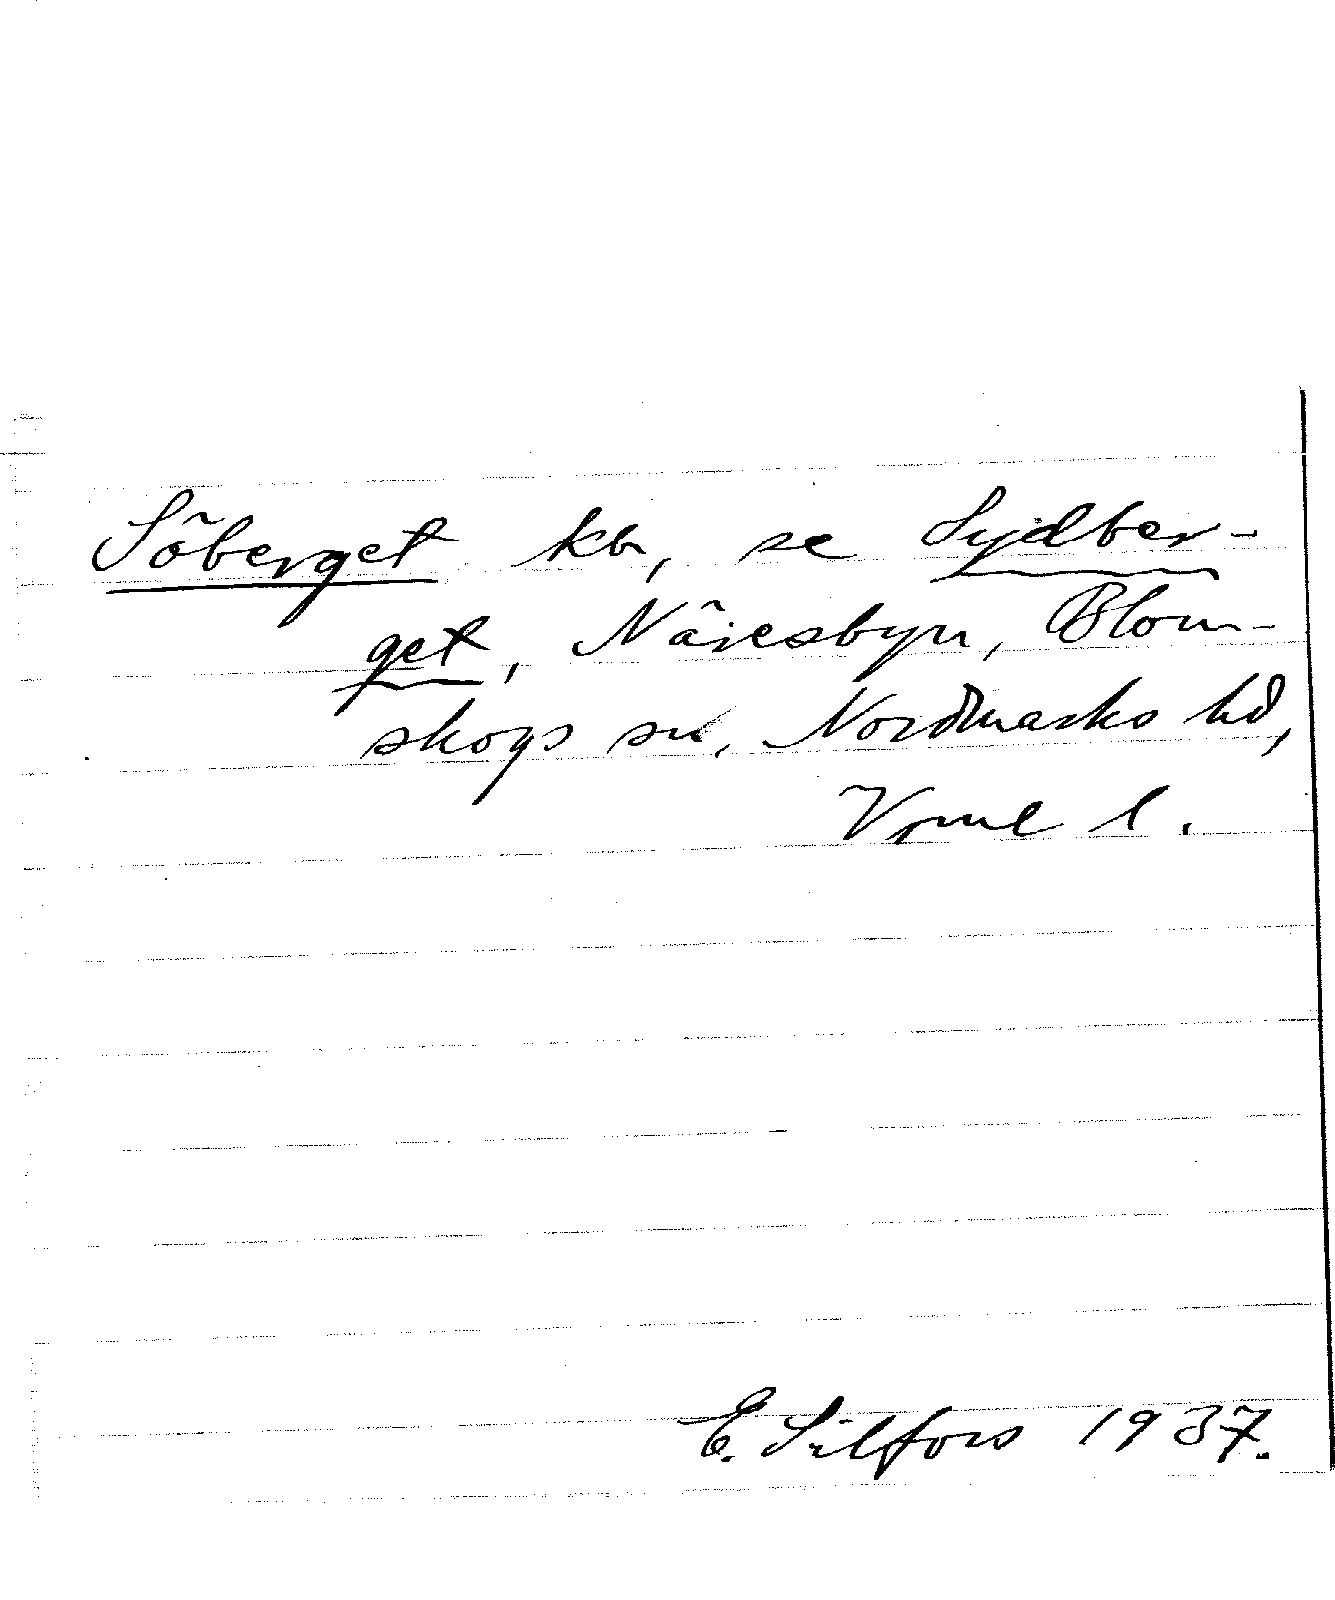 Söberget kn, se Sydber-
get, Näresbyn, Blom-
skogs sn, Nordmarks hd,
Vrml l.
E. Silfors 1937.